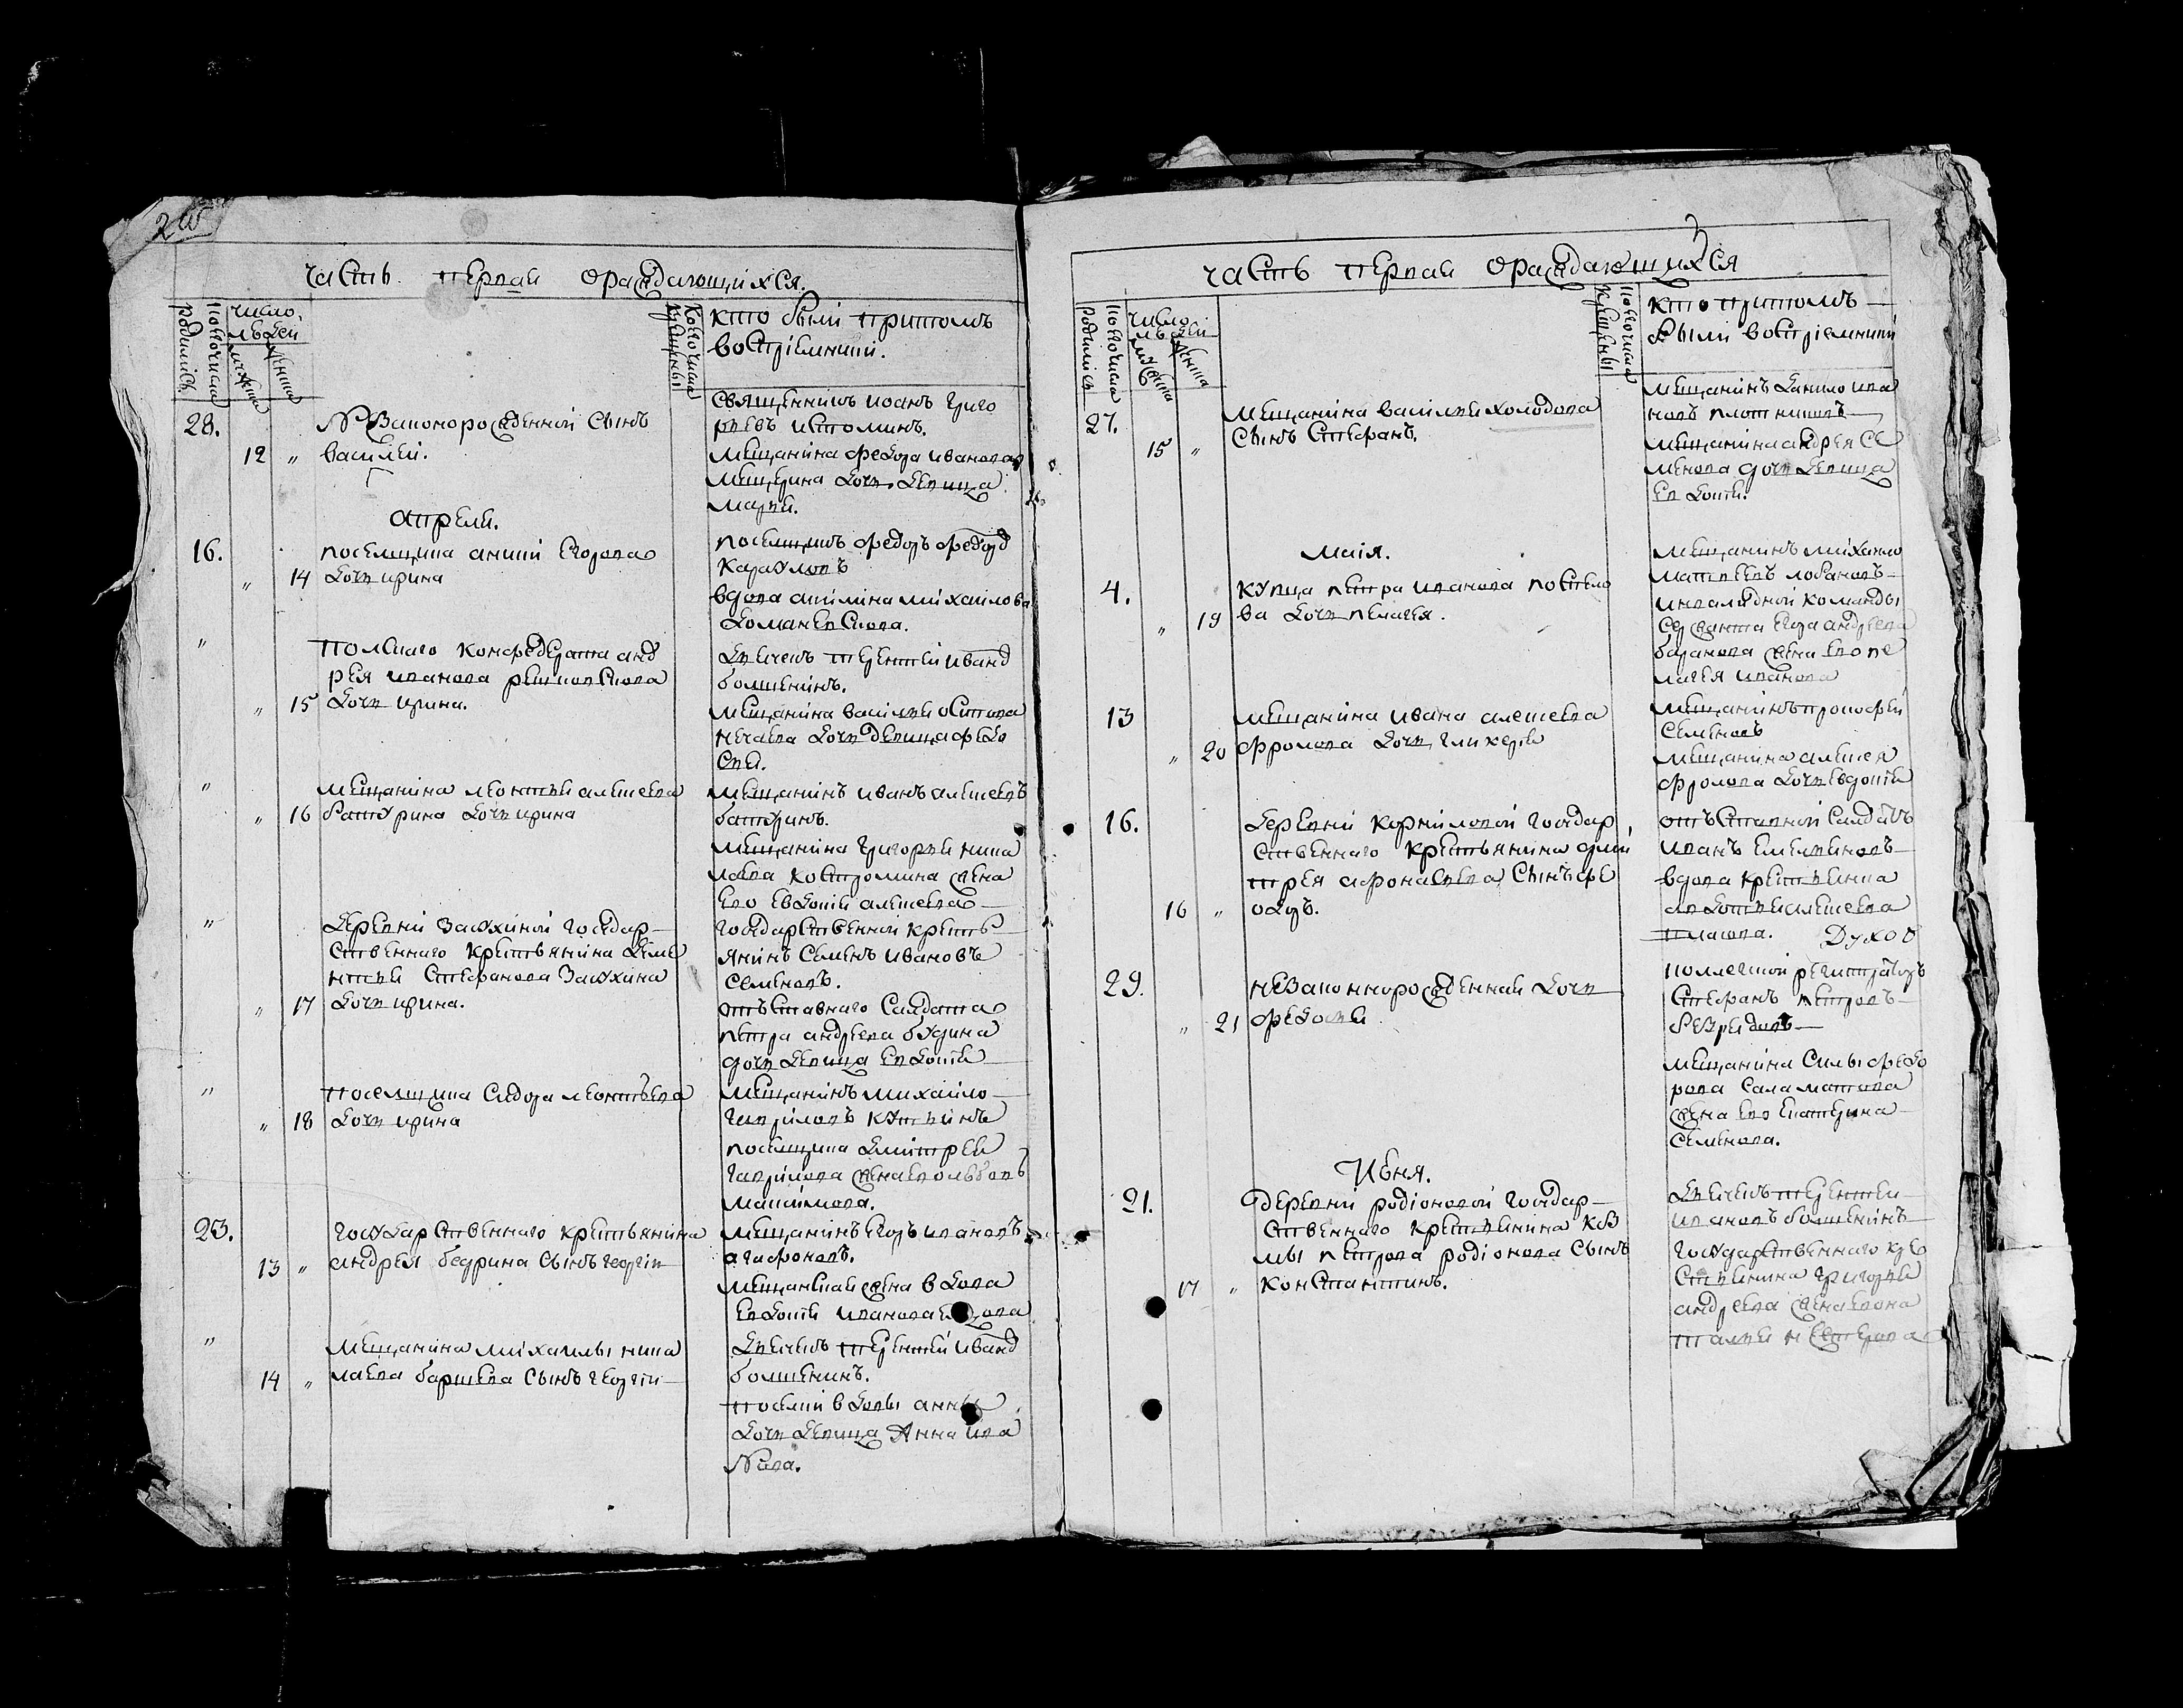 часть первая ораждающихся.
родились
которого числа
число
людей
мужска
женска
которого числа
крещены
кто были притомъ
востріемники.
28.
12 "
Незаконорожденной сынъ
василей.
священникъ иоанъ григо
рьевъ истоминъ.
мещанина федора иванова
мещерина дочь девица
марья.
апреля.
16.
" 14
поселщика аникия егорова
дочь ирина
поселщикъ федоръ федоро
карауловъ
вдова акилина михаилова
"
" 15
полскаго конфедерата анд
рея иванова
дочь ирина.
терентей ивано
болшенинъ.
мещанина василья осипова
нечаева дочь девица федо
сья.
"
" 16
мещанина леонтья алексеева
батурина дочь ирина
мещанинъ иванъ алексеевъ
батуринъ.
мещанина григорья нико
лаева костромина жена
ево евдокия алексеева
"
" 17
деревни заухиной государ
ственнаго крестьянина деме
нтья стефанова заухина
дочь ирина.
государственной кресть
янинъ семенъ ивановъ
семеновъ.
отъставнаго салдата
петра андреева будина
дочь девица евдокия
"
" 18
поселщика сидора леонтьева
дочь ирина
мещанинъ михаило
гаврiловъ кутьинъ
поселщика дмитрея
гаврилова жена ево любовь
максимова.
23.
13 "
государственнаго крестьянина
андрея бедрина сынъ георгiи
мещанинъ егоръ ивановъ
агафоновъ.
мещанская жена вдова
евдокия иванова
"
14 "
мещанина михаилы нико
лаева баршева сынъ георгiи
терентей ивано
болшенинъ.
вдовы анны
дочь девица анна ива
нова.
часть первая ораждающихся
родились
которого числа
число
людей
мужска
женска
которого числа
крещены
кто притомъ
были востріемники
27.
15 "
мещанина василья холодова
сынъ стефанъ.
мещанинъ данило ива
новъ плотниковъ
мещанина андрея се
менова дочь девица
евдокия.
маiя.
4.
" 19
купца петра иванова
ва дочь пелагея.
мещанинъ михаило
матвеевъ лобановъ
инвалидной команды
сержанта егора андреева
баранова жена ево пе
лагея иванова
13
" 20
мещанина ивана алексеева
фролова дочь гликерiя
мещанинъ прокофей
семеновъ
мещанина алексея
фролова дочь евдокия
16.
16 "
деревни корниловой государ
ственнаго крестьянина дми
трея афонасьева сынъ фе
одоръ.
отъставной салдатъ
иванъ емельяновъ
вдова крестьянка
авдотья алексеева
Духов
29.
" 21
незаконнорожденная дочь
федосья
коллегской регистраторъ
стефанъ петровъ
резвыдовъ
мещанина силы федо
рова саламатова
жена ево екатерина
семенова.
Июня.
21.
17 "
деревни родiоновой государ
ственнаго крестьянина коз
мы петрова родiонова сынъ
константинъ.
терентеи
ивановъ болшенинъ
государственнаго кре
стьянина григорья
андреева жена ево на
талья нестерова